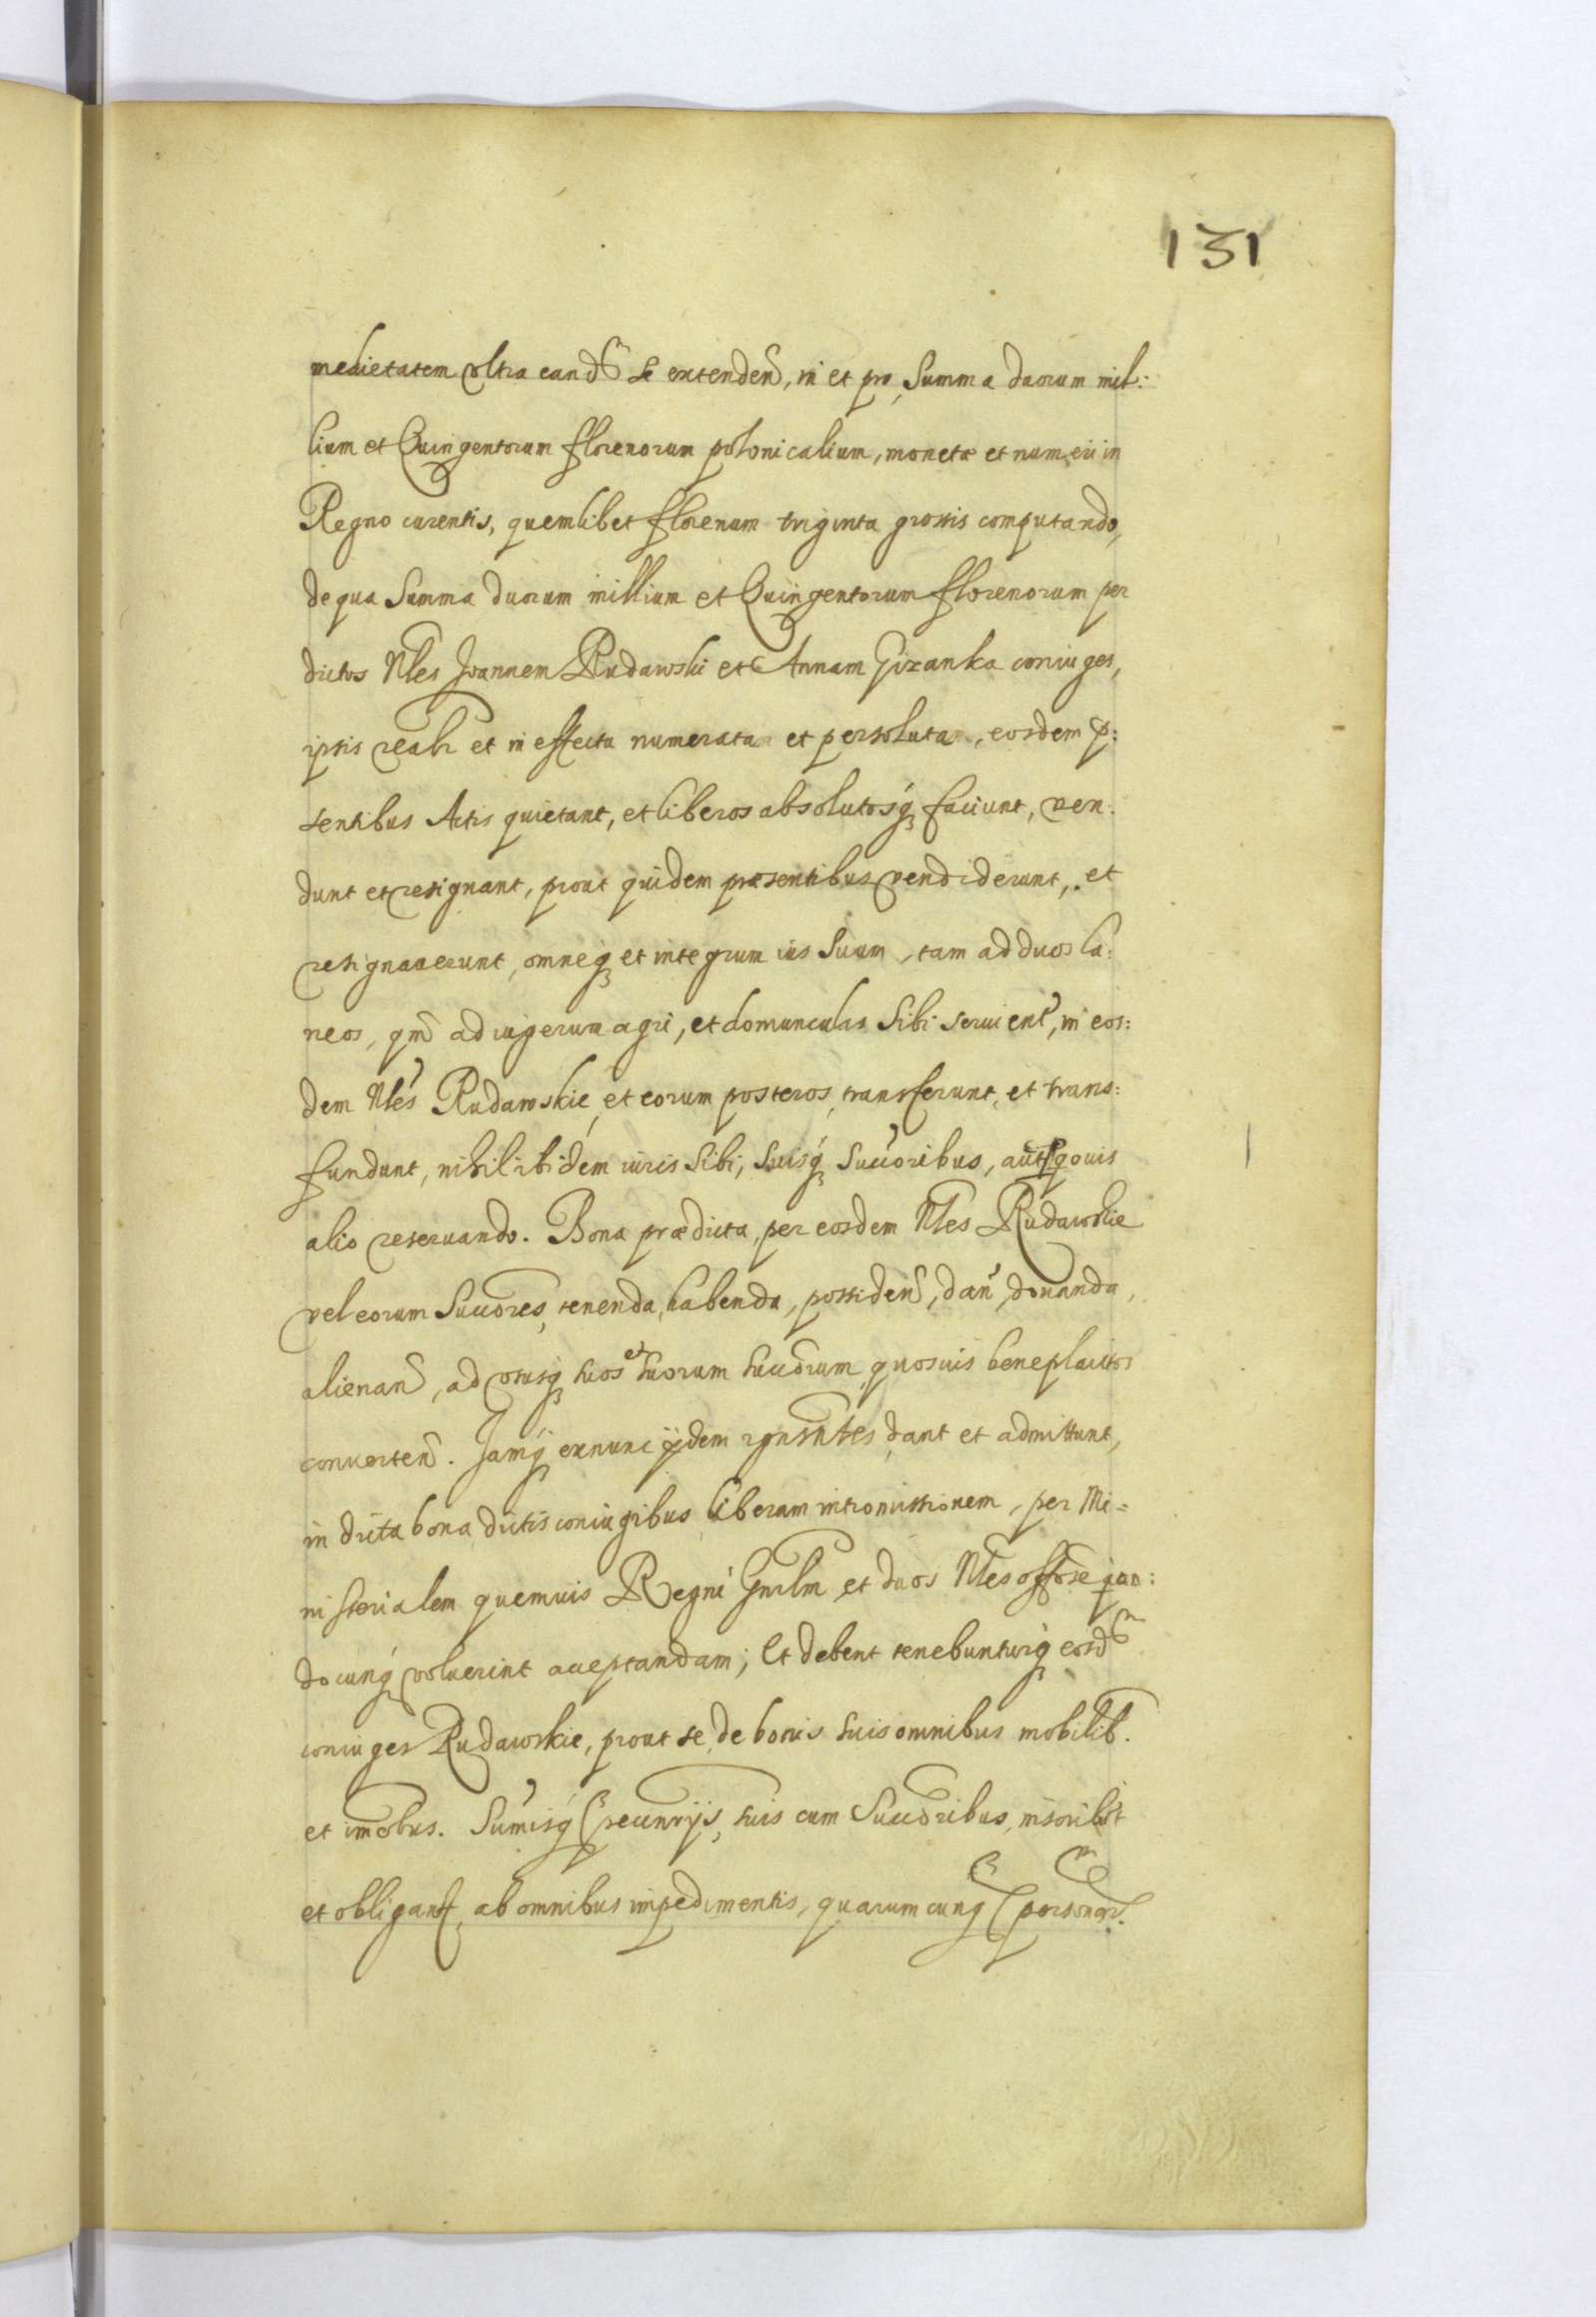 131
medietatem ultra eand͠m se extenden͠, in et pro, Summa duorum mil:
lium et Quingentorum florenorum polonicalium, monetæ et numeri in
Regno curentis, quemlibet florenum triginta grossis computando,
de qua Summa duorum millium et Quingentorum florenorum per
dictos Nles Joannem Rudawski et Annam Gizanka coniuges,
ipsis realr et in effectu numerata et persoluta, eosdem p:
sentibus Actis quietant, et liberos absolutosq́ꝫ faciunt, ven:
dunt et resignant, prout quidem præsentibus vendiderunt, et
resignauerunt, omneqꝫ et integrum ius Suum, tam ad duos la:
neos, qm̃ ad iugerum agri, et domunculas Sibi seruien͠t, in eos:
dem Nles Rudawskie, et eorum posteros, transferunt, et trans:
fundunt, nihil ibidem iuris Sibi, Suisq́ꝫ Succoribus, aut qouis
alio reseruando. Bona prædicta, per eosdem Nles Rudawskie
vel eorum Succores, tenenda, habenda, possiden͠, dan͠, donanda,
alienan͠, ad ususqꝫ suos et suorum succorum quosuis beneplacitos
conuerten͠. Jamq́ꝫ exnunc ijdem rgnsntes dant et admittunt,
in dicta bona dictis coniugibus liberam intromissionem, per Mi=
nisterialem quemuis Regni Gnrlm et duos Nles quan:
docunq́ꝫ voluerint acceptandam; Et debent tenebunturq́ꝫ eosd͠m
coniuges Rudawskie, prout se, de bonis suis omnibus mobilib.
et imobus. Sumisq́ꝫ pecunrijs, suis cum Succoribus, inscribt
et obligant, ab omnibus impedimentis, quarumcunqꝫ personar.